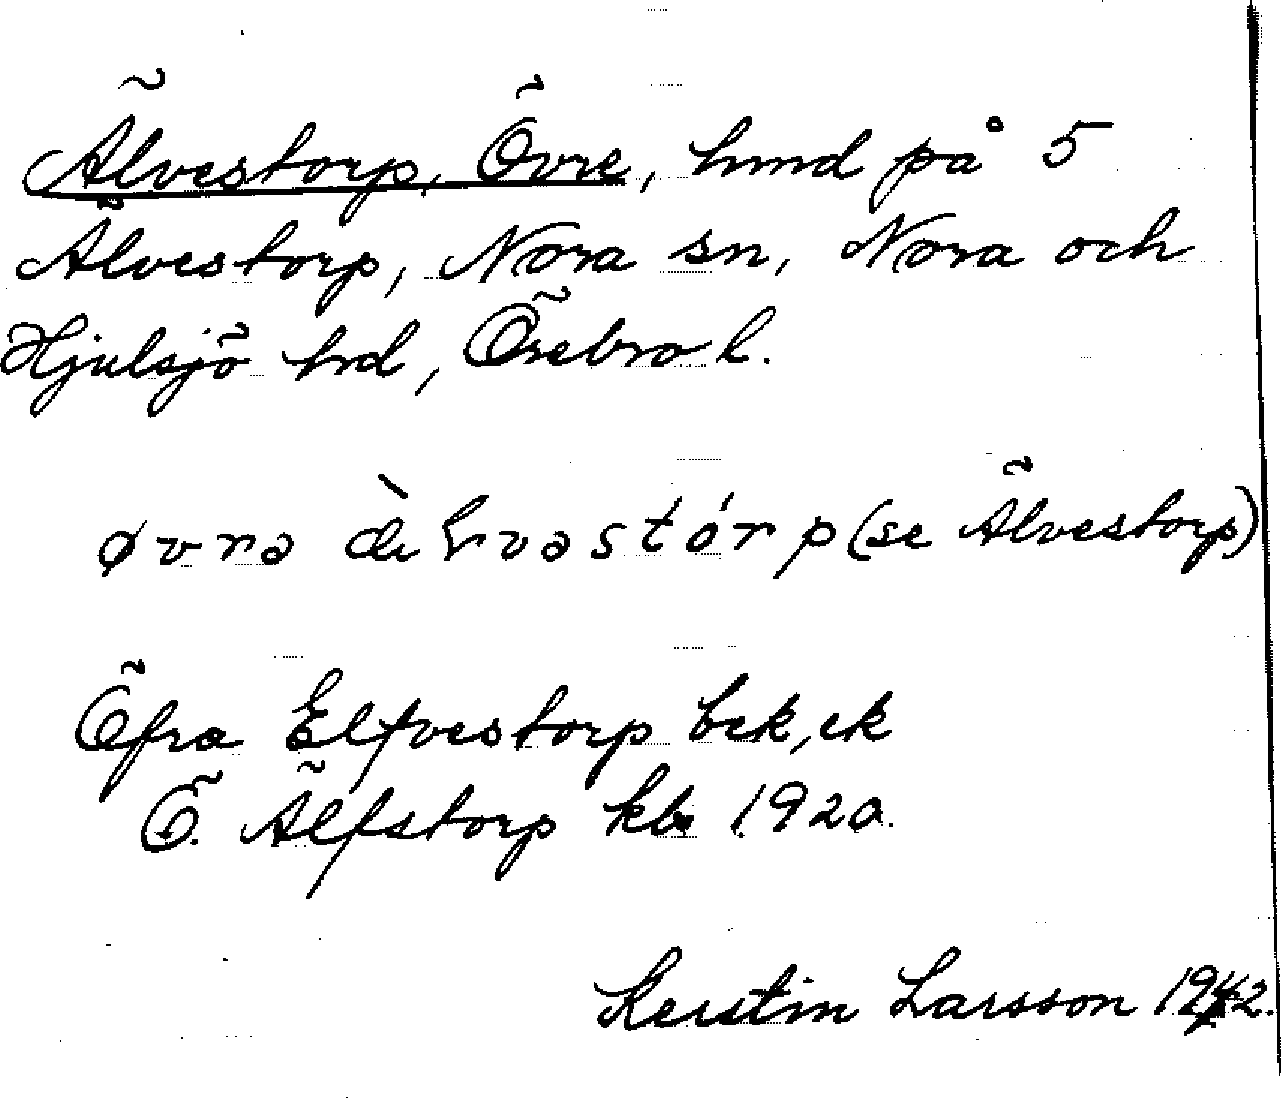 Älvestorp, Övre, hmd på 5
Älvestorp, Nora sn, Nora och
Hjulsjö hrd, Örebro l.
øvrə æ̀lvəstórp (se Älvestorp)
Öfra Elfvestorp bek, ek
Ö. Älfstorp kb 1920.
Kerstin Larsson 1942.